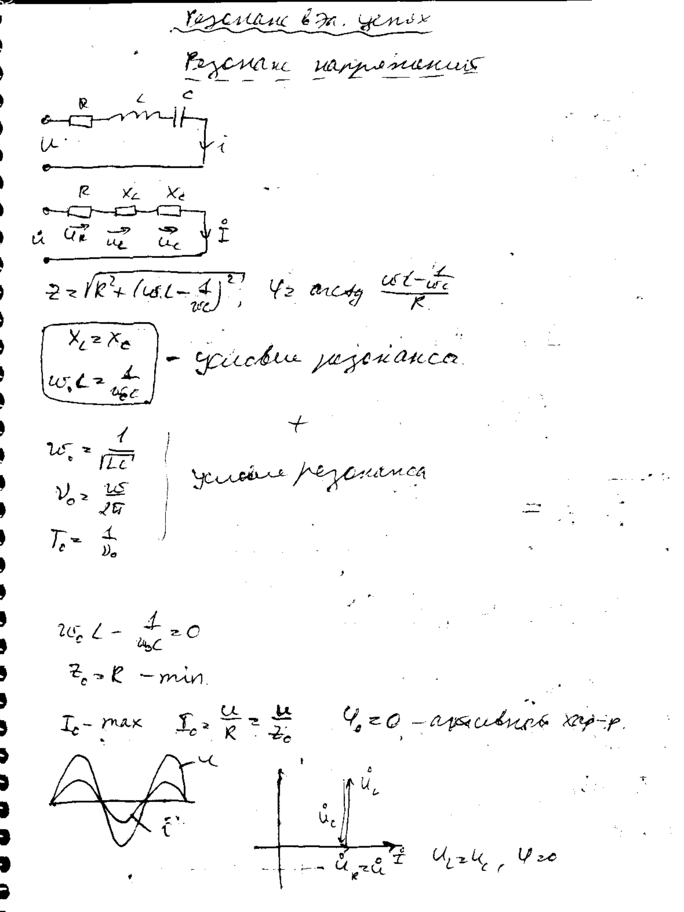 Резонанс в эл. цепях
Резонанс напряжений
R L C
U i
R X_L X_C
u̇ U_R U_L U_C İ
Z = √(R² + (ωL − 1/ωC)²), φ = arctg (ωL − 1/ωC)/R
X_L = X_C
ω₀L = 1/ω₀C
- условие резонанса.
+
ω₀ = 1/√LC
ν₀ = ω/2π
T₀ = 1/ν₀
условие резонанса
=
ω₀L − 1/ω₀C = 0
Z₀ = R - min.
I₀ - max I₀ = U/R = U/Z₀ φ₀ = 0 - активный хар-р.
u
i
U̇_L
U̇_C
U̇_R = U̇ İ U_L = U_C, φ = 0